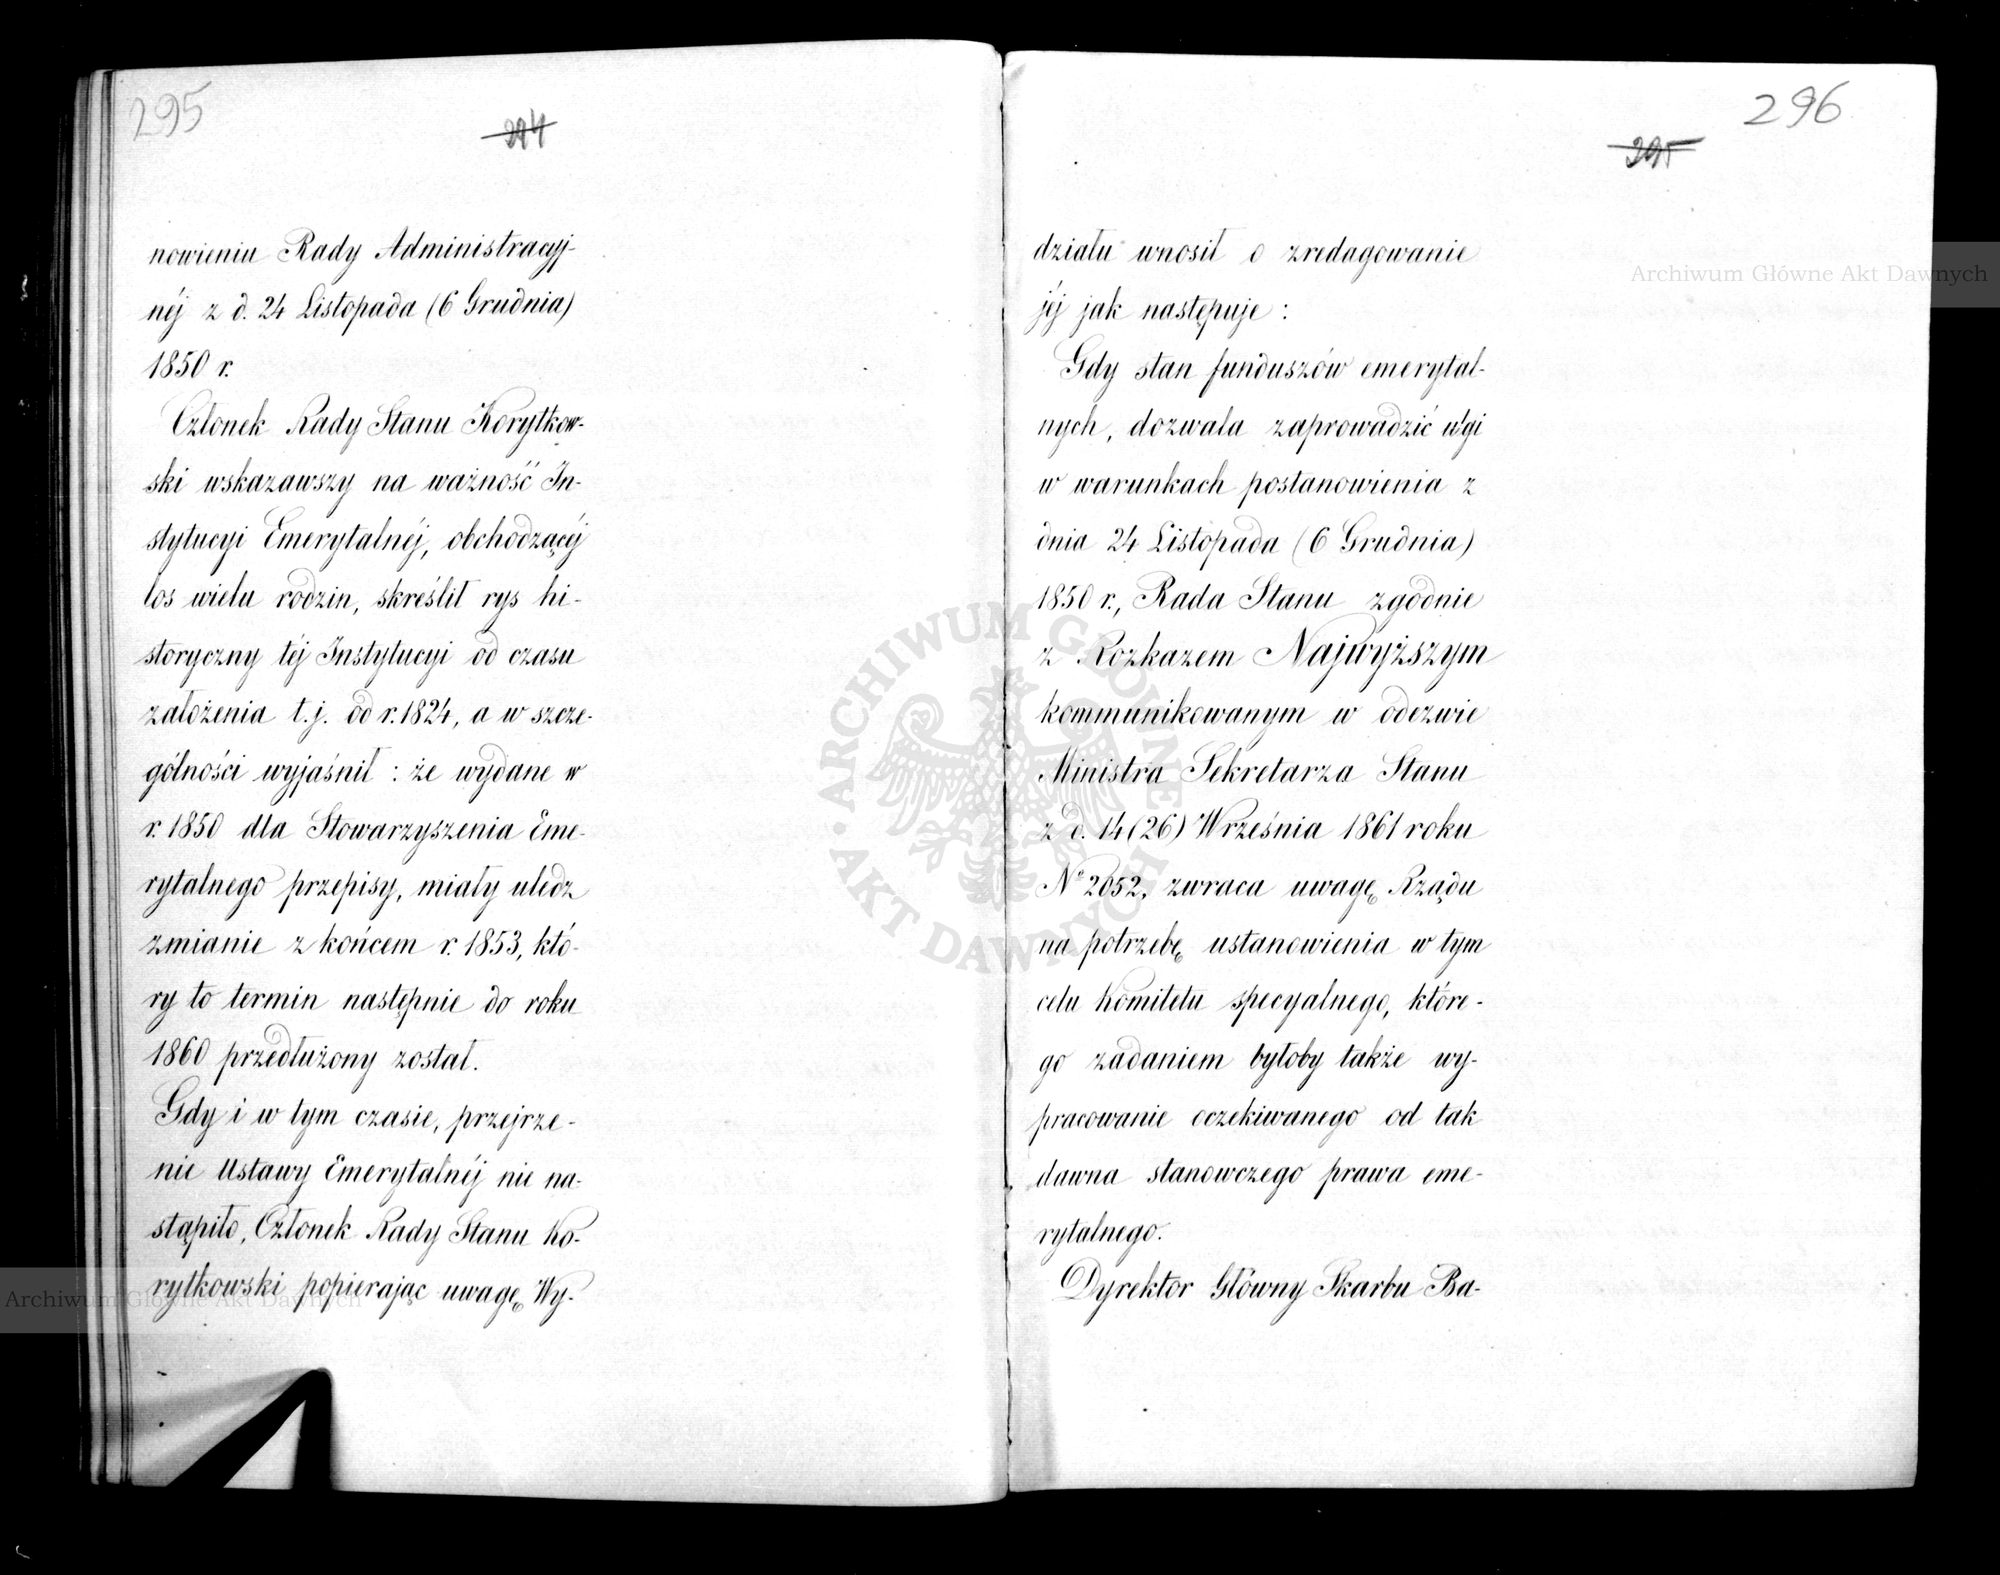 295
294
nowieniu Rady Administracyj-
néj z d. 24 Listopada (6 Grudnia)
1850 r.
Członek Rady Stanu Korytkow-
ski wskazawszy na ważność In-
stytucyi Emerytalnéj, obchodzącéj
los wielu rodzin, skreślił rys hi-
storyczny téj Instytucyi od czasu
założenia t.j. od r. 1824, a w szcze-
gólności wyjaśnił : że wydane w
r. 1850 dla Stowarzyszenia Eme-
rytalnego przepisy, miały uledz
zmianie z końcem r. 1853, któ-
ry to termin następnie do roku
1860 przedłużony został.
Gdy i w tym czasie, przejrze-
nie Ustawy Emerytalnéj nie na-
stąpiło, Członek Rady Stanu Ko-
rytkowski popierając uwagę Wy-
296
295
działu wnosił o zredagowanie
jéj jak następuje :
Gdy stan funduszów emerytal-
nych, dozwala zaprowadzić ulgi
w warunkach postanowienia z
dnia 24 Listopada (6 Grudnia)
1850 r., Rada Stanu zgodnie
z Rozkazem Najwyższym
kommunikowanym w odezwie
Ministra Sekretarza Stanu
z d. 14 (26) Września 1861 roku
Nº 2052, zwraca uwagę Rządu
na potrzebę ustanowienia w tym
celu Komitetu specyalnego, które-
go zadaniem byłoby także wy-
pracowanie oczekiwanego od tak
dawna stanowczego prawa eme-
rytalnego.
Dyrektor Główny Skarbu Ba-
Archiwum Główne Akt Dawnych
Archiwum Główne Akt Dawnych
ARCHIWUM GŁÓWNE AKT DAWNYCH